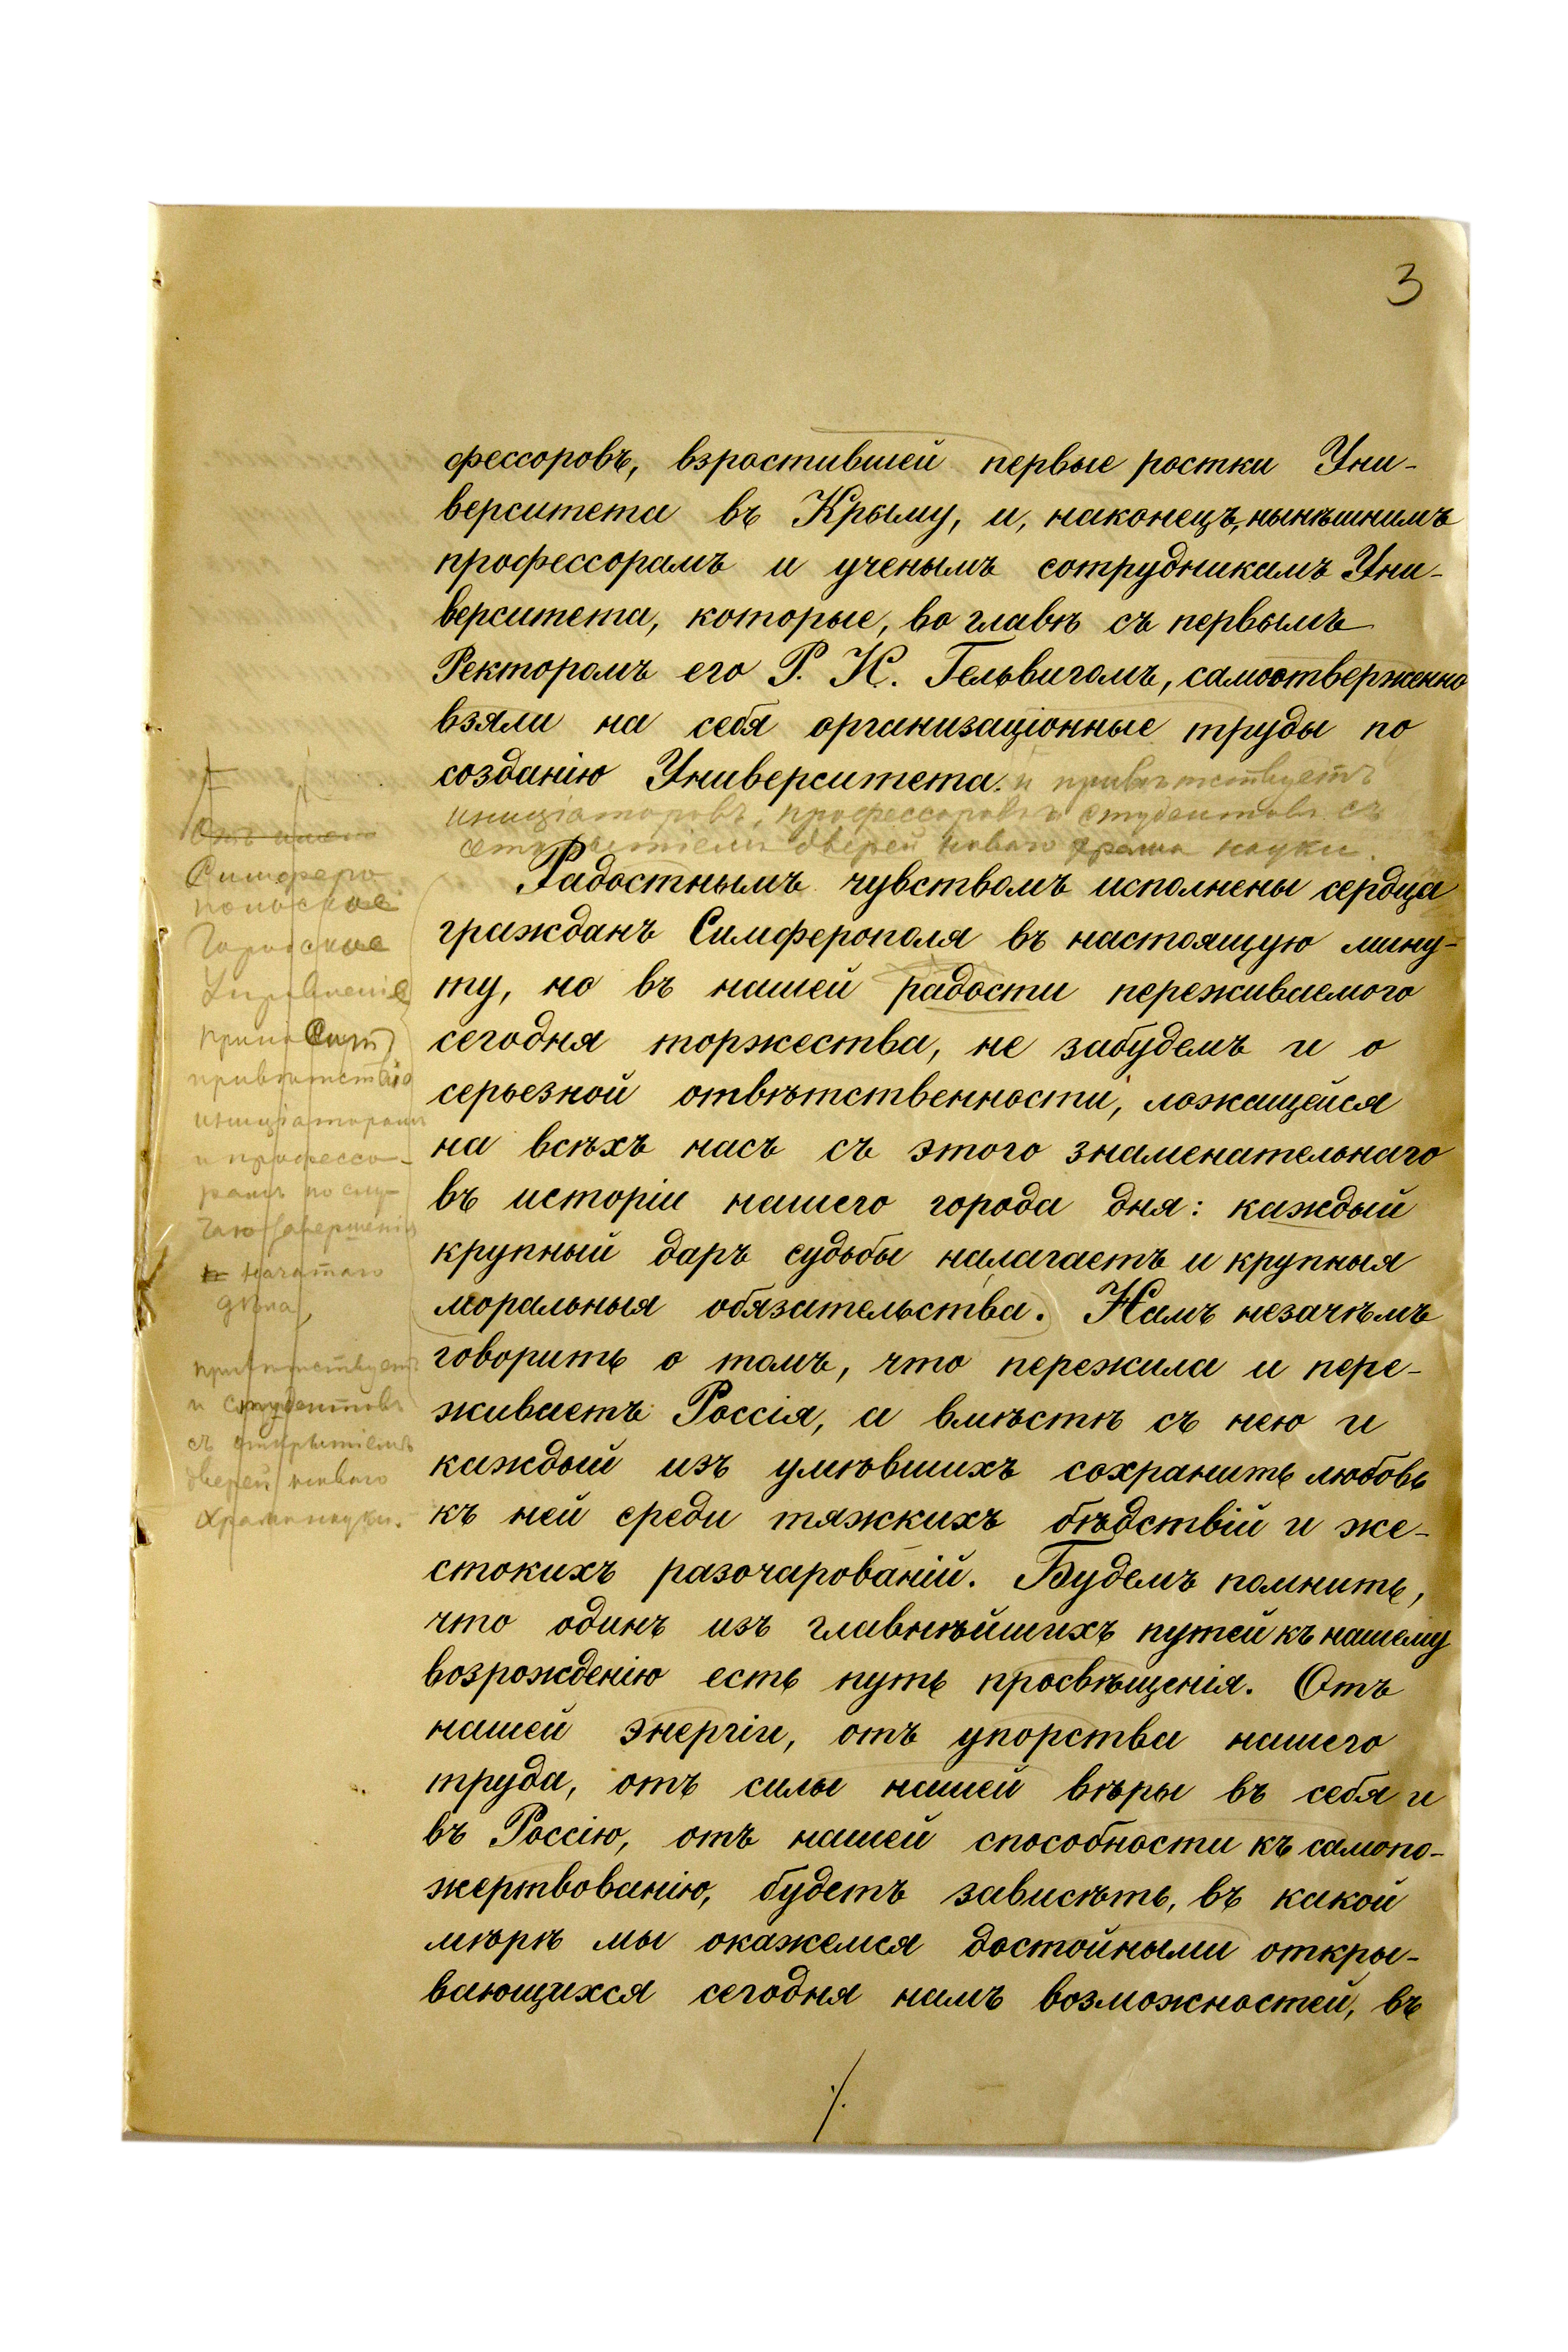 3
фессоровъ, взрастившей первые ростки Уни-
верситета въ Крыму, и, наконецъ, нынѣшнимъ
профессорамъ и ученымъ сотрудникамъ Уни-
верситета, которые, во главѣ съ первымъ
Ректоромъ его Р. И. Гельвигомъ, самоотверженно
взяли на себя организаціонные труды по
созданію Университета. и привѣтствуетъ
иниціаторовъ, профессоровъ и студентовъ съ
открытіемъ дверей новаго храма науки.
Радостнымъ чувствомъ исполнены сердца
гражданъ Симферополя въ настоящую мину-
ту, но въ нашей радости переживаемого
сегодня торжества, не забудемъ и о
серьезной отвѣтственности, ложащейся
на всѣхъ насъ съ этого знаменательнаго
въ исторіи нашего города дня: каждый
крупный даръ судьбы налагаетъ и крупныя
моральныя обязательства. Намъ незачѣмъ
говорить о томъ, что пережила и пере-
живаетъ Россія, а вмѣстѣ съ нею и
каждый изъ умѣвшихъ сохранить любовь
къ ней среди тяжкихъ бѣдствій и же-
стокихъ разочарованій. Будемъ помнить,
что одинъ изъ главнѣйшихъ путей къ нашему
возрожденію есть путь просвѣщенія. Отъ
нашей энергіи, отъ упорства нашего
труда, отъ силы нашей вѣры въ себя и
въ Россію, отъ нашей способности къ самопо-
жертвованію, будетъ зависѣть, въ какой
мѣрѣ мы окажемся достойными откры-
вающихся сегодня намъ возможностей, въ
./.
Отъ имени
Симферо
польское
Городское
Управленіе
приноситъ
привѣтствіе
иниціаторамъ
и профессо-
рамъ по слу-
чаю завершенія
начатаго
дѣла,
привѣтствуетъ
и студентовъ
съ открытіемъ
дверей новаго
храма науки.